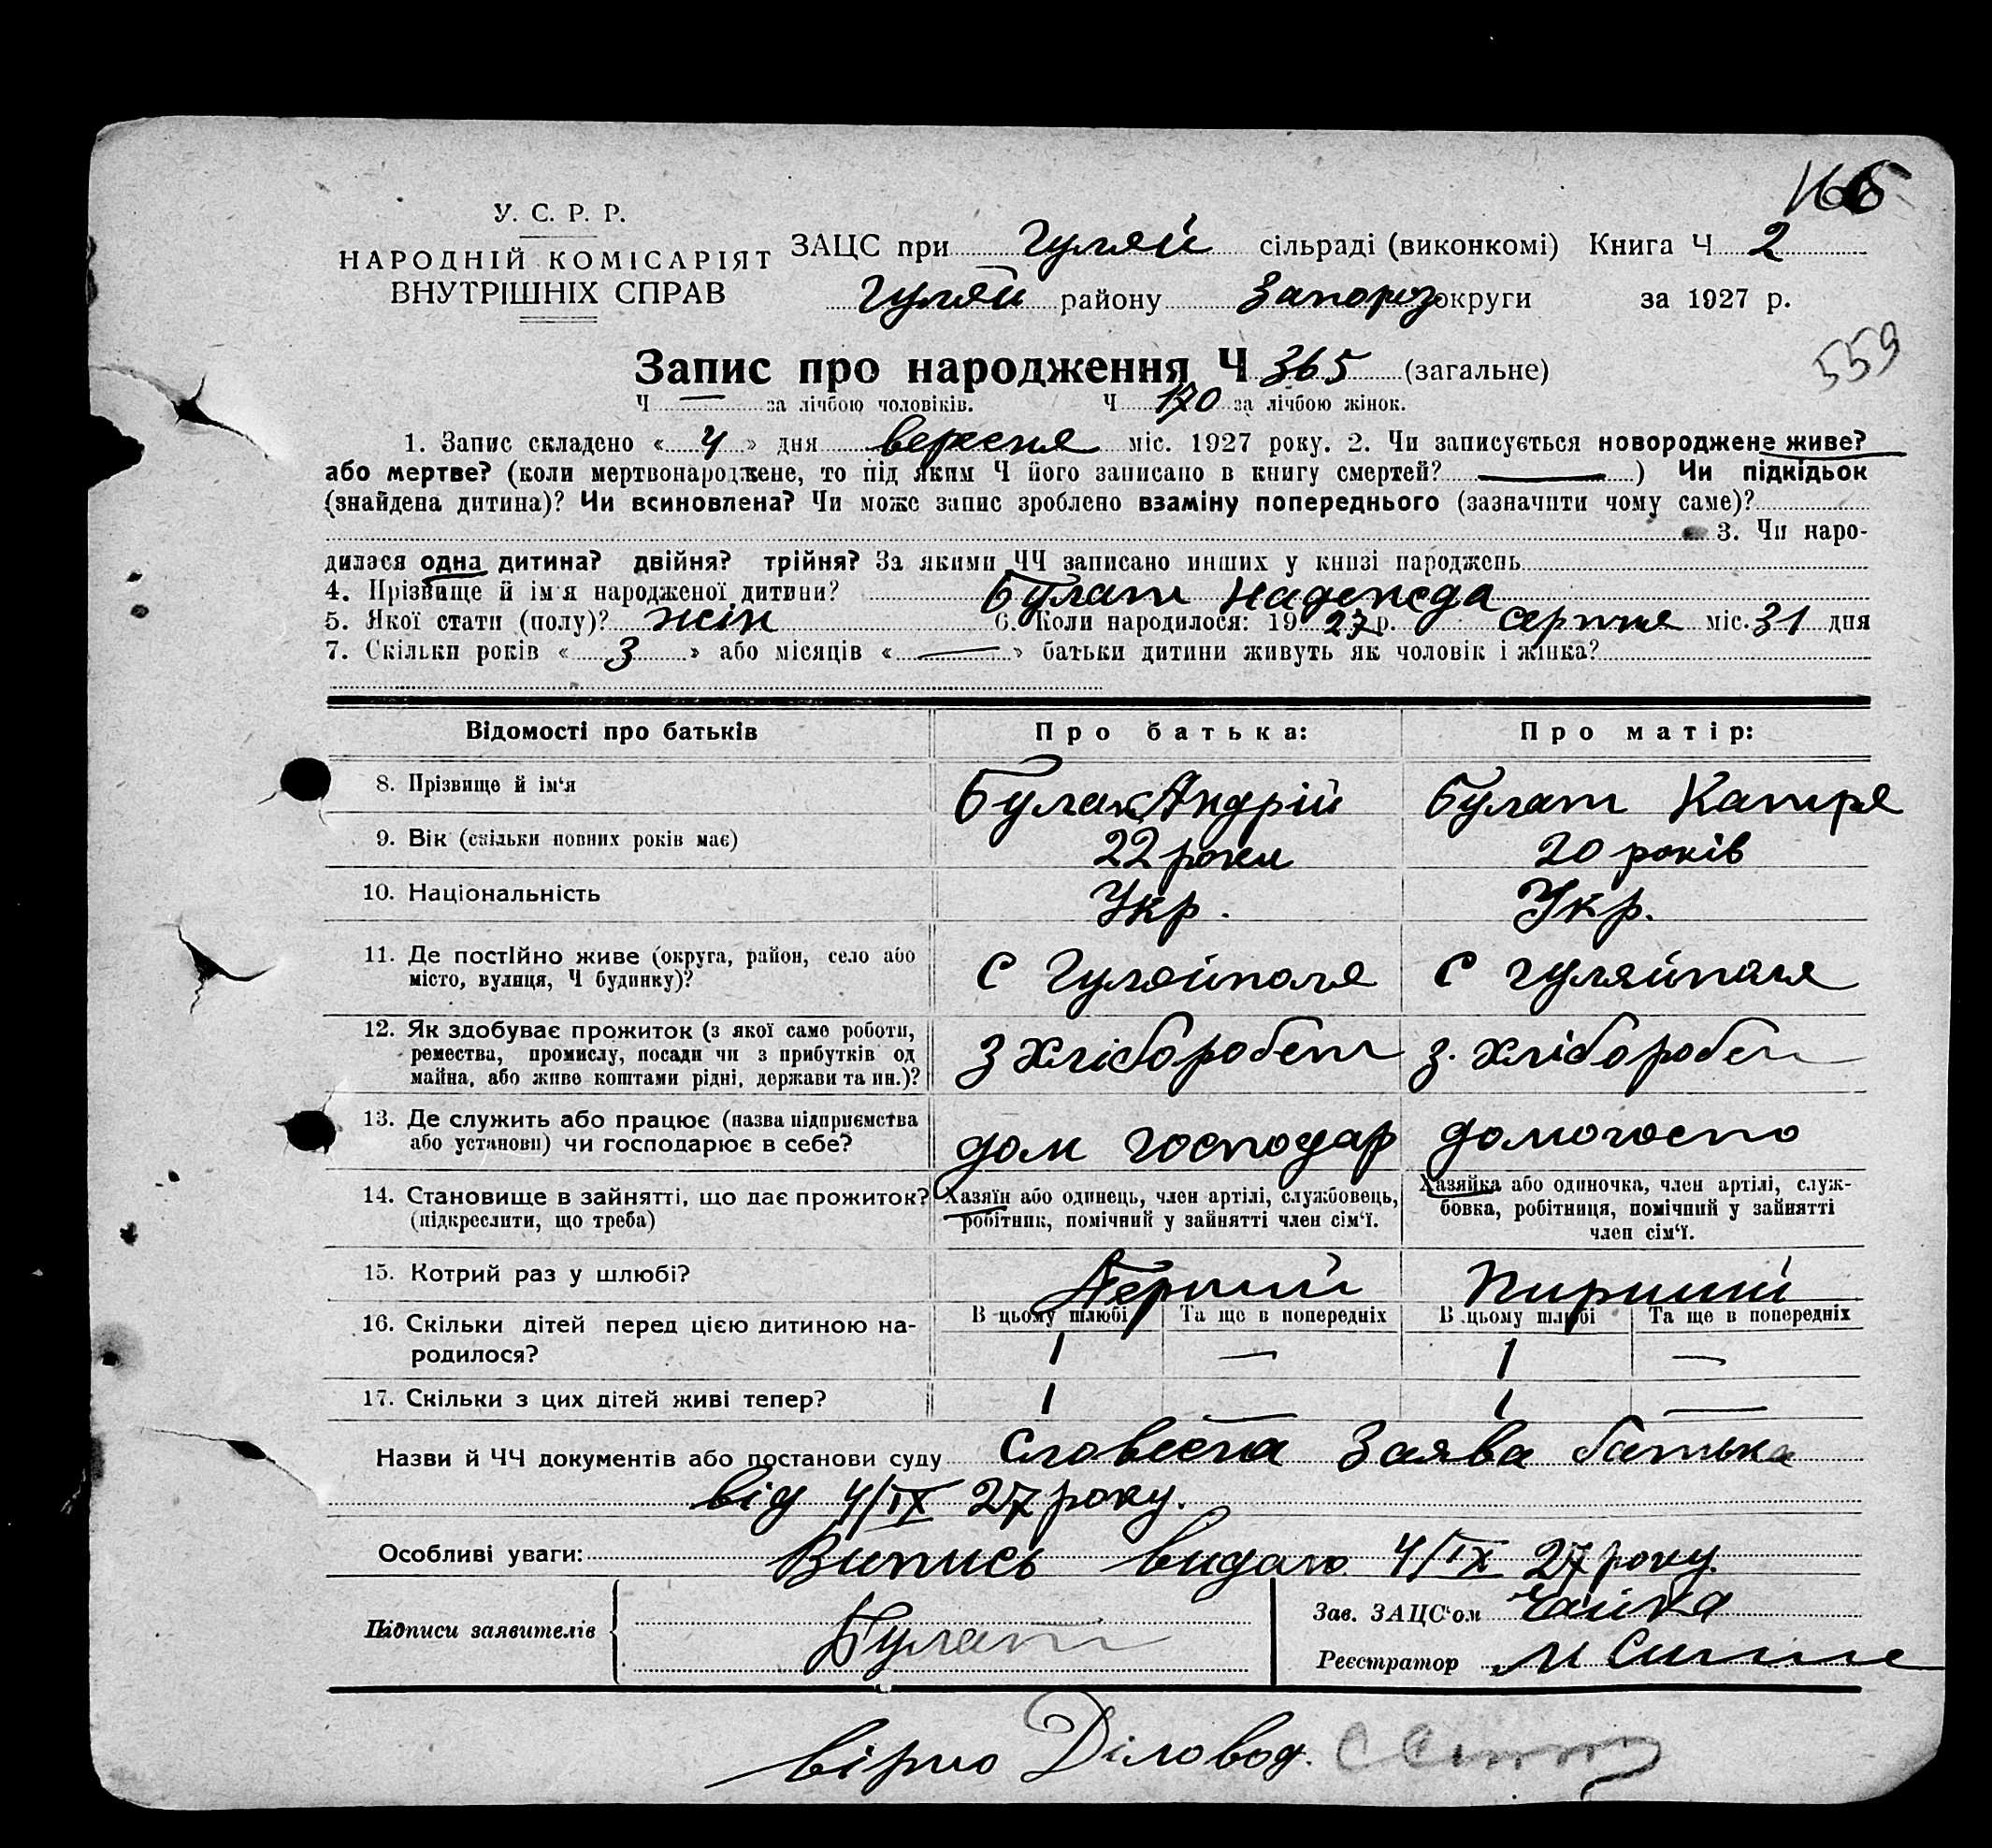 У. С. Р. Р.
НАРОДНІЙ КОМІСАРІЯТ
ВНУТРІШНІХ СПРАВ
ЗАЦС при Гуляй сільраді (виконкомі) Книга Ч 2
Гуляй району Запорoз округи за 1927 р.
559
Запис про народження Ч 365 (загальне)
Ч — за лічбою чоловіків. Ч 170 за лічбою жінок.
1. Запис складено « 4 » дня вересня міс. 1927 року. 2. Чи записується новороджене живе?
або мертве? (коли мертвонароджене, то під яким Ч його записано в книгу смертей? — ) Чи підкідьок
(знайдена дитина)? Чи всиновлена? Чи може запис зроблено взаміну попереднього (зазначити чому саме)?
3. Чи наро-
дилася одна дитина? двійня? трійня? За якими ЧЧ записано инших у книзі народжень
4. Прізвище й ім'я народженої дитини? Булат Надежда
5. Якої стати (полу)? жін 6. Коли народилося: 19 27 р. серпня міс. 31 дня
7. Скільки років « 3 » або місяців « — » батьки дитини живуть як чоловік і жінка?
Відомості про батьків Про батька: Про матір:
8. Прізвище й ім'я Булат Андрій Булат Катря
9. Вік (скільки повних років має) 22 роки 20 років
10. Національність Укр. Укр.
11. Де постійно живе (округа, район, село або
місто, вулиця, Ч будинку)? с Гуляйполя с Гуляйполя
12. Як здобуває прожиток (з якої саме роботи,
ремества, промислу, посади чи з прибутків од
майна, або живе коштами рідні, держави та ин.)? З хлібороб з. хлібороб
13. Де служить або працює (назва підприємства
або установи) чи господарює в себе? дом господар домогоспо
14. Становище в зайнятті, що дає прожиток?
(підкреслити, що треба)
Хазяїн або одинець, член артілі, службовець,
робітник, помічний у зайнятті член сім'ї.
Хазяйка або одиночка, член артілі, служ-
бовка, робітниця, помічний у зайнятті
член сім'ї.
15. Котрий раз у шлюбі? Перший Пирший
В цьому шлюбі Та ще в попередніх В цьому шлюбі Та ще в попередніх
16. Скільки дітей перед цією дитиною на-
родилося? 1 — 1 —
17. Скільки з цих дітей живі тепер? 1 — 1 —
Назви й ЧЧ документів або постанови суду Словесна Заява батька
від 4/IX 27 року.
Особливі уваги: Випись видано 4/IX 27 року.
Підписи заявителів Булат
Зав. ЗАЦС'ом Чайка
Реєстратор
вірно Діловод.